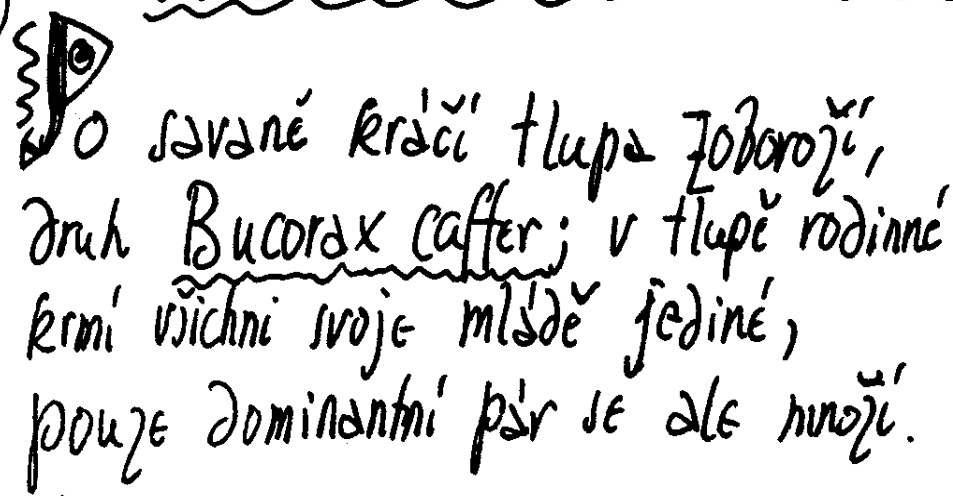 Po savaně kráčí tlupa Zoboroží,
druh Bucorax caffer; v tlupě rodinné
krmí všichni svoje mládě jediné,
pouze dominantní pár se ale množí.